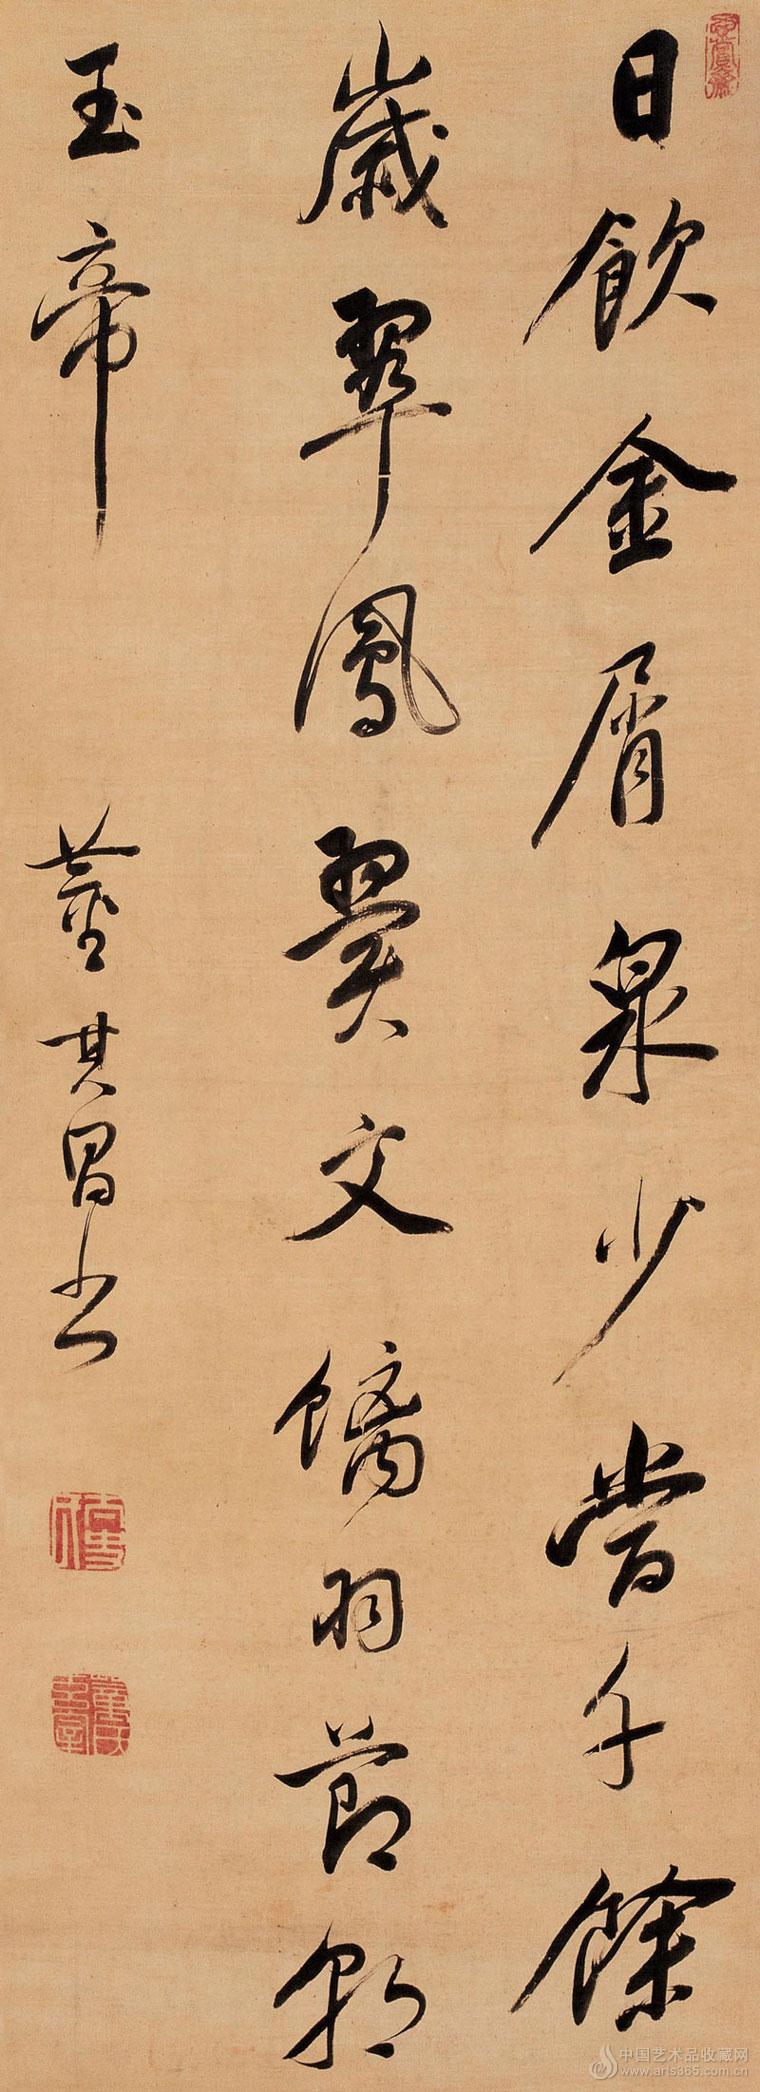 玄賞齋
日飲金屑泉少當千餘
歲翠鳳翼文螭羽節朝
玉帝
董其昌書
中国艺术品收藏网
www.arts365.com.cn